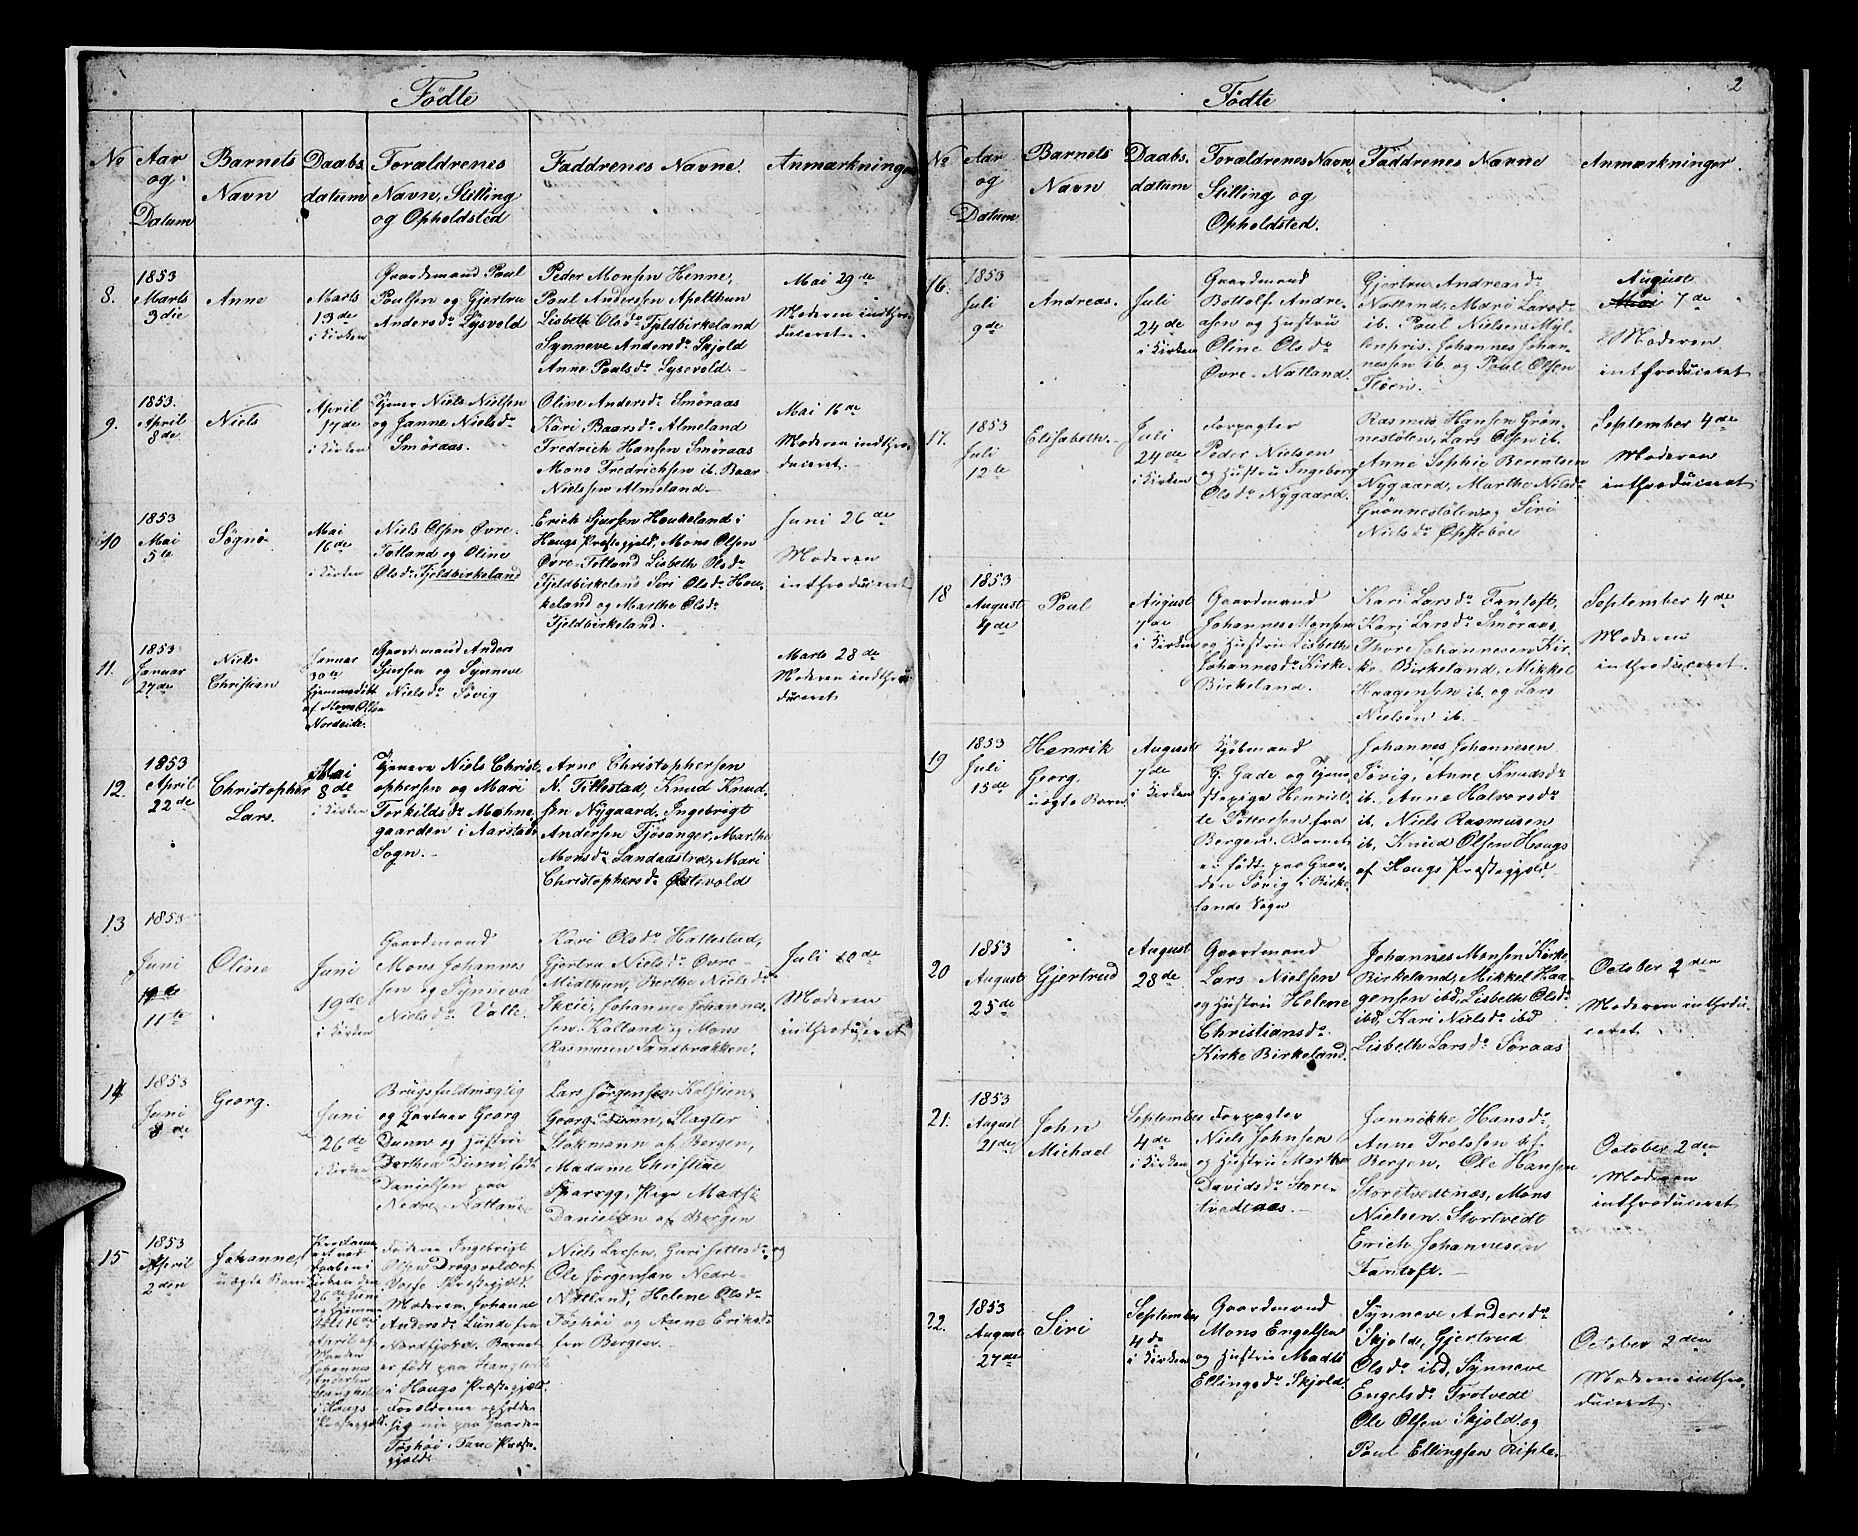 Fødte
No
Aar
og
Datum
Barnets
Navn
Daabs
datum
Forældrenes
Navn, Stilling
og Opholdsted
Faddrenes Navne.
Anmærkninger
8.
1853
Marts
3die
Anne
Marts
13de
i Kirken
Gaardmand Paul
Poulsen og Gjertru
Andersdr Lysevold
Peder Monsen Henne,
Poul Andersen Apelthun
Lisbeth Olsdr Fjeldbirkeland
Synneve Andersdr Skjold
Anne Poulsdr Lysevold.
Mai 29de
Moderen inthro-
duceret.
9.
1853.
April
8de
Niels
April
17de
i Kirken
Tjener Niels Nielsen
og Janne Nielsdr
Smøraas.
Oline Andersdr Smøraas
Kari Baarsdr Almeland
Fredrich Hansen Smøraas
Mons Fredrichsen ib. Baar
Nielsen Almeland.
Mai 16de
Moderen inthro-
duceret.
10
1853
Mai
5te
Søgni
Mai
16de
i Kirken
Niels Olsen Øvre-
Totland og Oline
Olsdr Fjeldbirkeland
Erich Sjursen Houkeland i
Hougs Præstegjeld, Mons Olsen
Øvre-Totland Lisbeth Olsdr
Fjeldbirkeland Siri Olsdr Hou-
keland og Marthe Olsdr
Fjeldbirkeland.
Juni 26de
Moderen
inthroduceret
11.
1853
Januar
27de
Niels
Christian
Januar
30te
hjemmedøbt
af Mons Olsen
Nordeide.
Gaardmand Anders
Sjursen og Synneve
Nielsdr Søvig
Marts 28de
Moderen inthro-
duceret.
12.
1853
April
22de
Christopher
Lars.
Mai
8de
i Kirken
Tjenere Niels Christ-
ophersen og Mari
Torkildsdr Møhne-
gaarden i Aarstads
Sogn.
Anne Christophersen
N. Tittestad, Knud Knud-
sen Nygaard, Ingebrigt
Andersen Tjøsanger, Marthe
Monsdr Landaastræt, Mari
Christophersdr Østevold
13
1853
Juni
19de
11te
Oline
Juni
19de
i Kirken
Gaardmand
Mons Johannes-
sen og Synneva
Nielsdr Valle.
Kari Olsdr Hattestad,
Gjertru Nielsdr Øvre-
Midthun, Berthe Nielsdr
Skeie, Johannes Johannes-
sen Kalland og Mons
Rasmusen Sandbrækken.
Juli 10de
Moderen
inthroduceret
14
1853
Juni
8de
Georg.
Juni
26de
i Kirken
Brugsfuldmægtig
og Gartner Georg
Dunn og Hustru
Dorthea Dunn, født
Danielsen paa
Nedre-Nattland
Lars Jørgensen, Kolstien,
Georg Dunn, Slagter
Stokmann af Bergen,
Madame Christine
Sparsyg, Pige Madsi
Danielsen af Bergen
15
1853
April
2den
Johannes
uægte Barn
Kirken den
26de Juni
April af
Johannes
Andersen
i Hougs
Præstegjeld.
Faderen Ingebrigt
Olsen Drøgsvold af
Vosse Præstegjeld.
Moderen Johanne
Andersdr Lunde fra
Nordfjord. Barnet
er født paa
i Hougs Præstegjeld.
Forældrene opholder
sig nu paa Gaarden
Føshøi i Fane Præste-
gjeld.
Niels Larsen, Guri Jettesdr og
Ole Jørgensen Nedre-
Natland, Helene Olsdr
Føshøi og Anne Eriksdr
fra Bergen.
2
Fødte
No
Aar
og
Datum
Barnets
Navn
Daabs.
datum
Forældrenes Navn,
Stilling og
Opholdsted.
Faddrenes Navne
Anmærkninger.
16.
1853
Juli
9de
Andreas.
Juli
24de
i Kirken
Gaardmand
Bottolf Andre-
asen og Hustru
Oline Olsdr
Øvre-Natland.
Gjertru Andreasdr
Natland, Mari Larsdr
ib. Poul Nielsen Myl-
enpris. Johannes Johan-
nesen ib. og Poul Olsen
Fløen.
August
Mai 7de
Moderen
inthroduceret
17.
1853
Juli
12te
Elisabeth.
Juli
24de
i Kirken
Forpagter
Peder Nielsen
og Hustru Ingeborg
Olsdr Nygaard.
Rasmus Hansen Grøn-
nestølen, Lars Olsen ib.
Anne Sophie Berentsen
Nygaard, Marthe Nilsdr
Grønnestølen og Siri
Nielsdr Øpstebøe
September 4de
Moderen
inthroduceret
18
1853
August
4de
Poul
August
7de
i Kirken
Gaardmand
Johannes Monsen
og Hustru Lisbeth
Johannesdr Kirke-
Birkeland.
Kari Larsdr Fantoft,
Kari Larsdr Smøraas,
Thore Johannesen Kir-
ke-Birkeland, Mikkel
Haagensen ib. og Lars
Nielsen ib.
September 4de
Moderen
inthroduceret.
19
1853
Juli
15de
Henrik
Georg.
uægte Barn
August
7de
i Kirken
Kjøbmand
G. Gade og Tjene-
stepige Henriet-
te Pettersen fra
Bergen. Barnet
er født paa Gaar-
den Søvig i Birke-
lands Sogn
Johannes Johannesen
Søvig, Anne Knudsdr
ib. Anne Halvorsdr
ib. Niels Rasmusen
ib. Knud Olsen Hougs
af Hougs Præstegjeld.
20
1853
August
25de
Gjertrud
August
28de
Gaardmand
Lars Nielsen
og Hustru Helene
Christiansdr
Kirke Birkeland.
Johannes Monsen Kirke-
Birkeland, Mikkel Haa-
gensen ibd, Lisbeth Olsdr
ibd, Kari Nielsdr ibd
Lisbeth Larsdr Søraas
October 2den
Moderen inthrodu-
ceret.
21.
1853
August
21de
John
Michael
September
4de
i Kirken
Forpagter
Niels Johnsen
og Hustru Marthe
Davidsdr Store-
tvedtnæs.
Jannikke Hansdr
Anne Trolssen af
Bergen, Ole Hansen
Storetvedtnæs, Mons
Nielsen Stortvedt
Erich Johannesen
Fantoft.
October 2den
Moderen
inthroduceret
22.
1853
August
27de
Siri
September
4de
i Kirken
Gaardmand
Mons Engelsen
og Hustru Madti
Ellingsdr Skjold.
Synneve Andersdr
Skjold, Gjertrud
Olsdr ibd, Synneve
Engelsdr Trotvedt
Ole Olsen Skjold og
Poul Ellingsen Riple.
October 2den
Moderen inthro-
duceret.